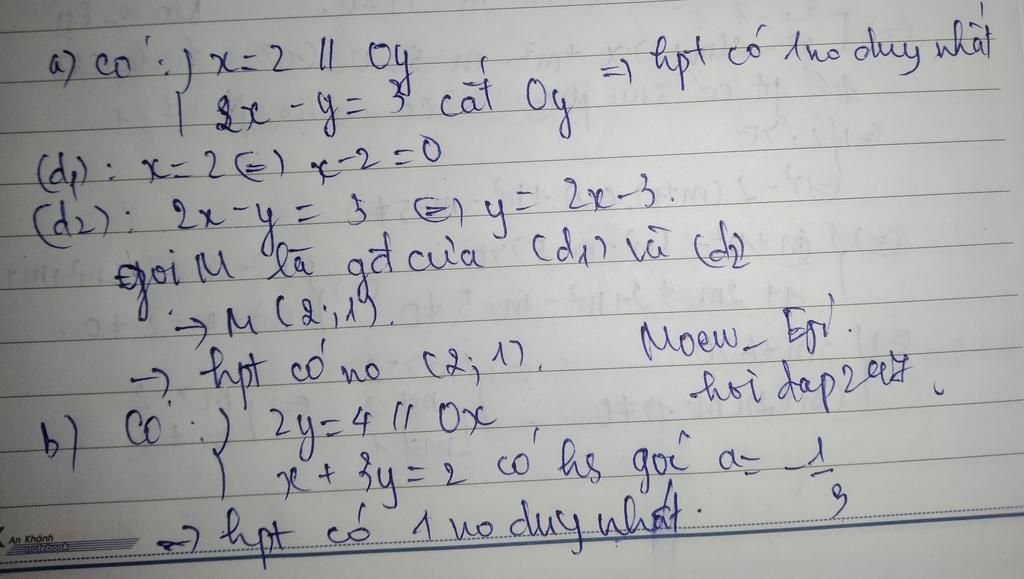 a) Có: { x = 2 // Oy
2x - y = 3 cắt Oy => hpt có 1 no duy nhất
(d1): x = 2 (=) x - 2 = 0
(d2): 2x - y = 3 (=) y = 2x - 3.
gọi M là gđ của (d1) và (d2
-> M (2; 1).
-> hpt có no (2; 1). Moew_Epi.
hoidap247.
b) Có: { 2y = 4 // Ox
x + 3y = 2 có hs góc a = -1/3
=> hpt có 1 no duy nhất.
An Khánh
notebook